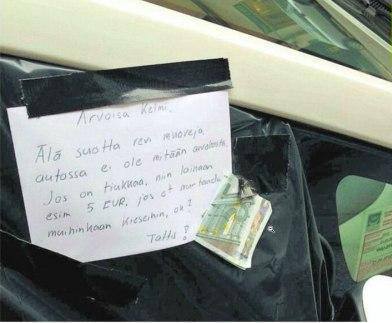 Arvoisa Kelmi.
Älä suotta revi muoveja,
autossa ei ole mitään arvokasta.
Jos on tiukkaa, niin lainaan
esim 5 EUR, jos et mur taudu
muihinkaan kieseihin, ok?
Tattis!
5